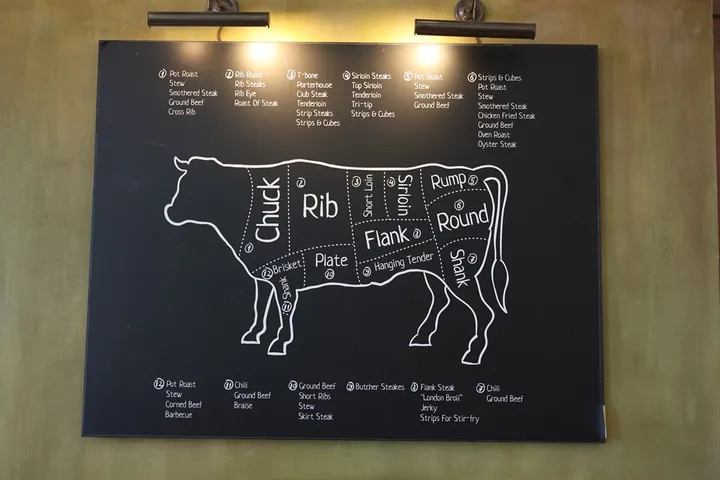 1 Pot Roast
Stew
Smothered Steak
Ground Beef
Cross Rib
2 Rib Roast
Rib Steaks
Rib Eye
Roast Of Steak
3 T-bone
Porterhouse
Club Steak
Tenderioin
Strip Steaks
Strips & Cubes
4 Sirioin Steaks
Top Sirioin
Tenderioin
Tri-tip
Strips & Cubes
5 Pot Roast
Smothered Steak
Ground Beef
6 Strips & Cubes
Pot Roast
Stew
Smothered Steak
Chicken Fried Steak
Ground Beef
Oven Roast
Oyster Steak
Chuck
1
2
Rib
3
Short Loin
4
Sirloin
Rump 5
6
Round
Flank 8
12 Brisket
Plate
10
9 Hanging Tender
Shank
7
Shank
11
12 Pot Roast
Stew
Corned Beef
Barbecue
11 Chili
Ground Beef
Braise
10 Ground Beef
Short Ribs
Stew
Skirt Steak
9 Butcher Steakes
8 Flank Steak
"London Broil"
Jerky
Strips For Stir-fry
7 Chili
Ground Beef